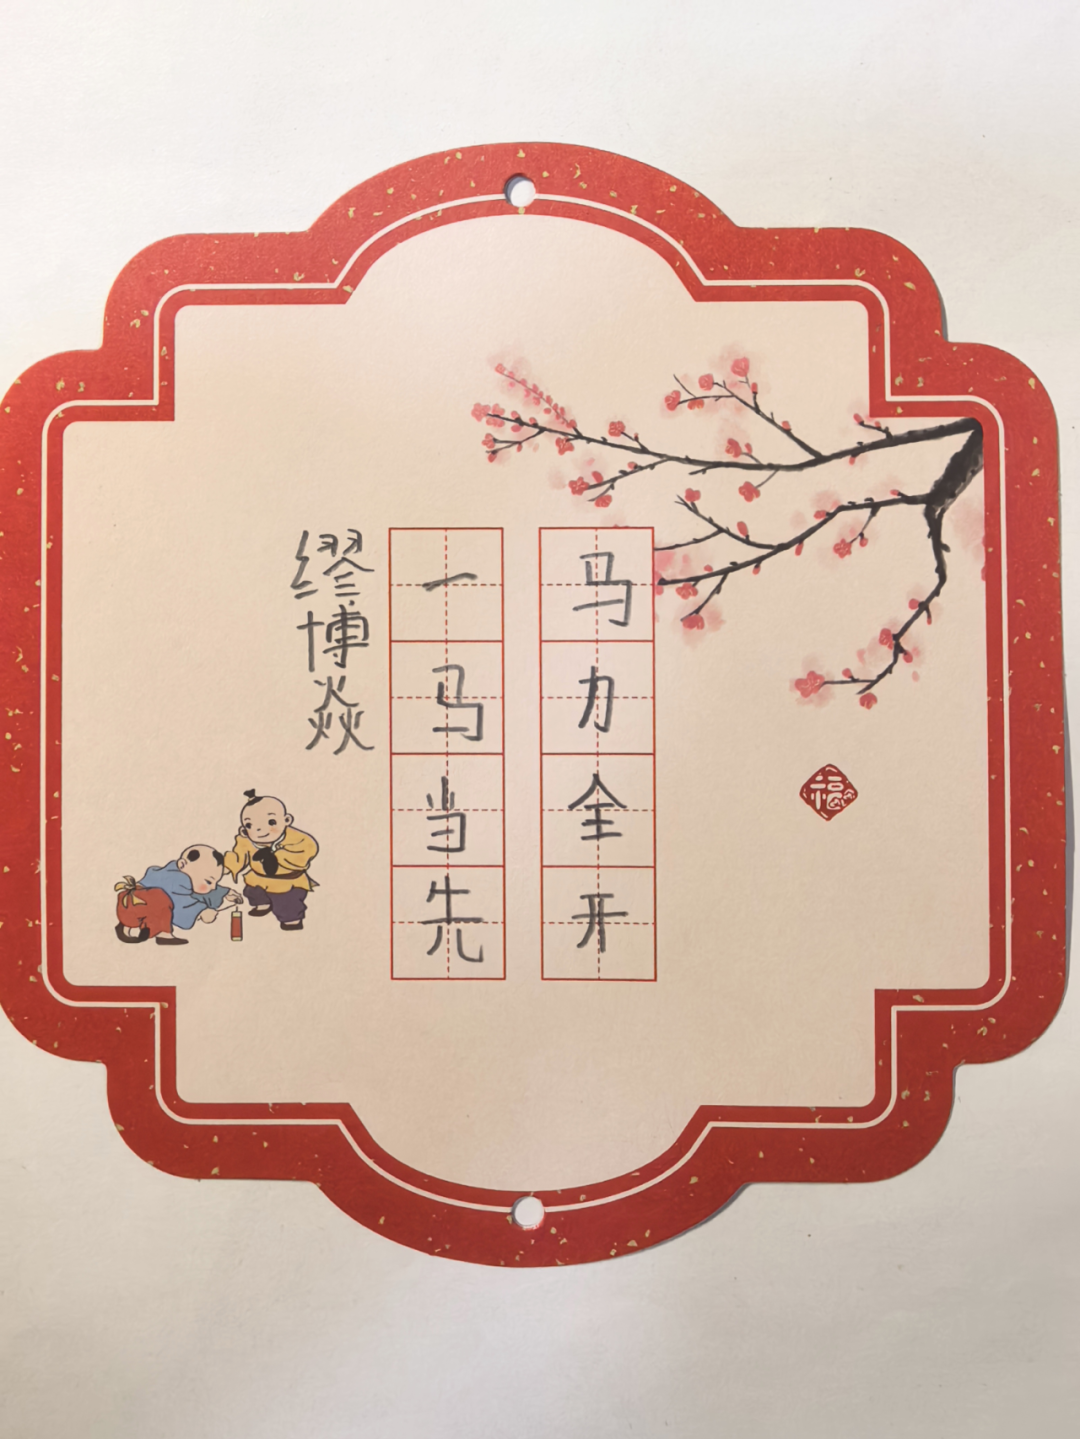 马力全开
一马当先
缪博焱
福